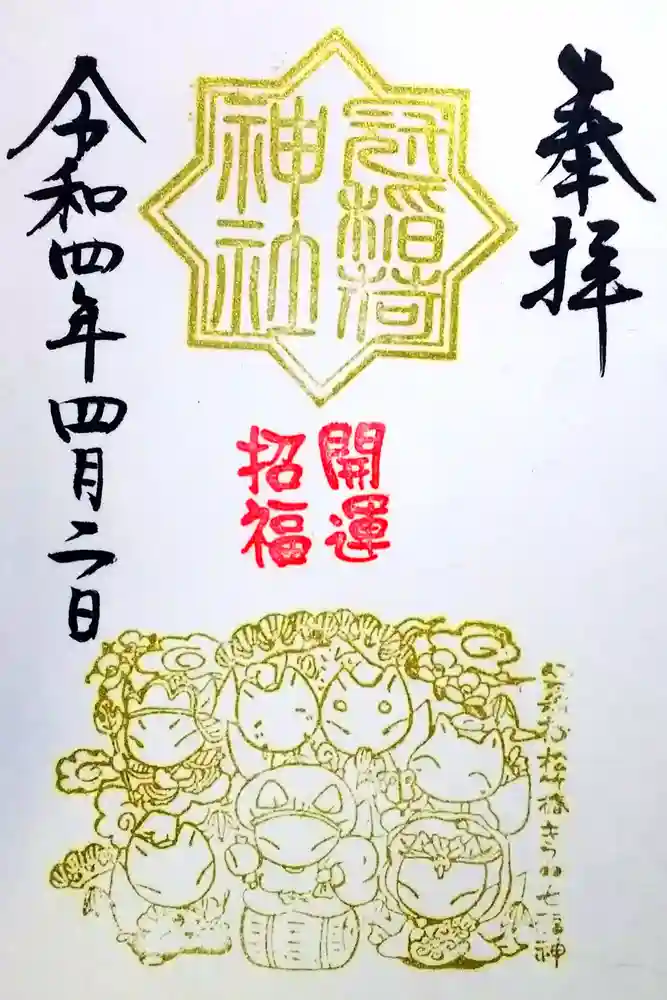 奉拝
冠稲荷
神社
開運
招福
令和四年四月二日
松竹椿きつね七福神